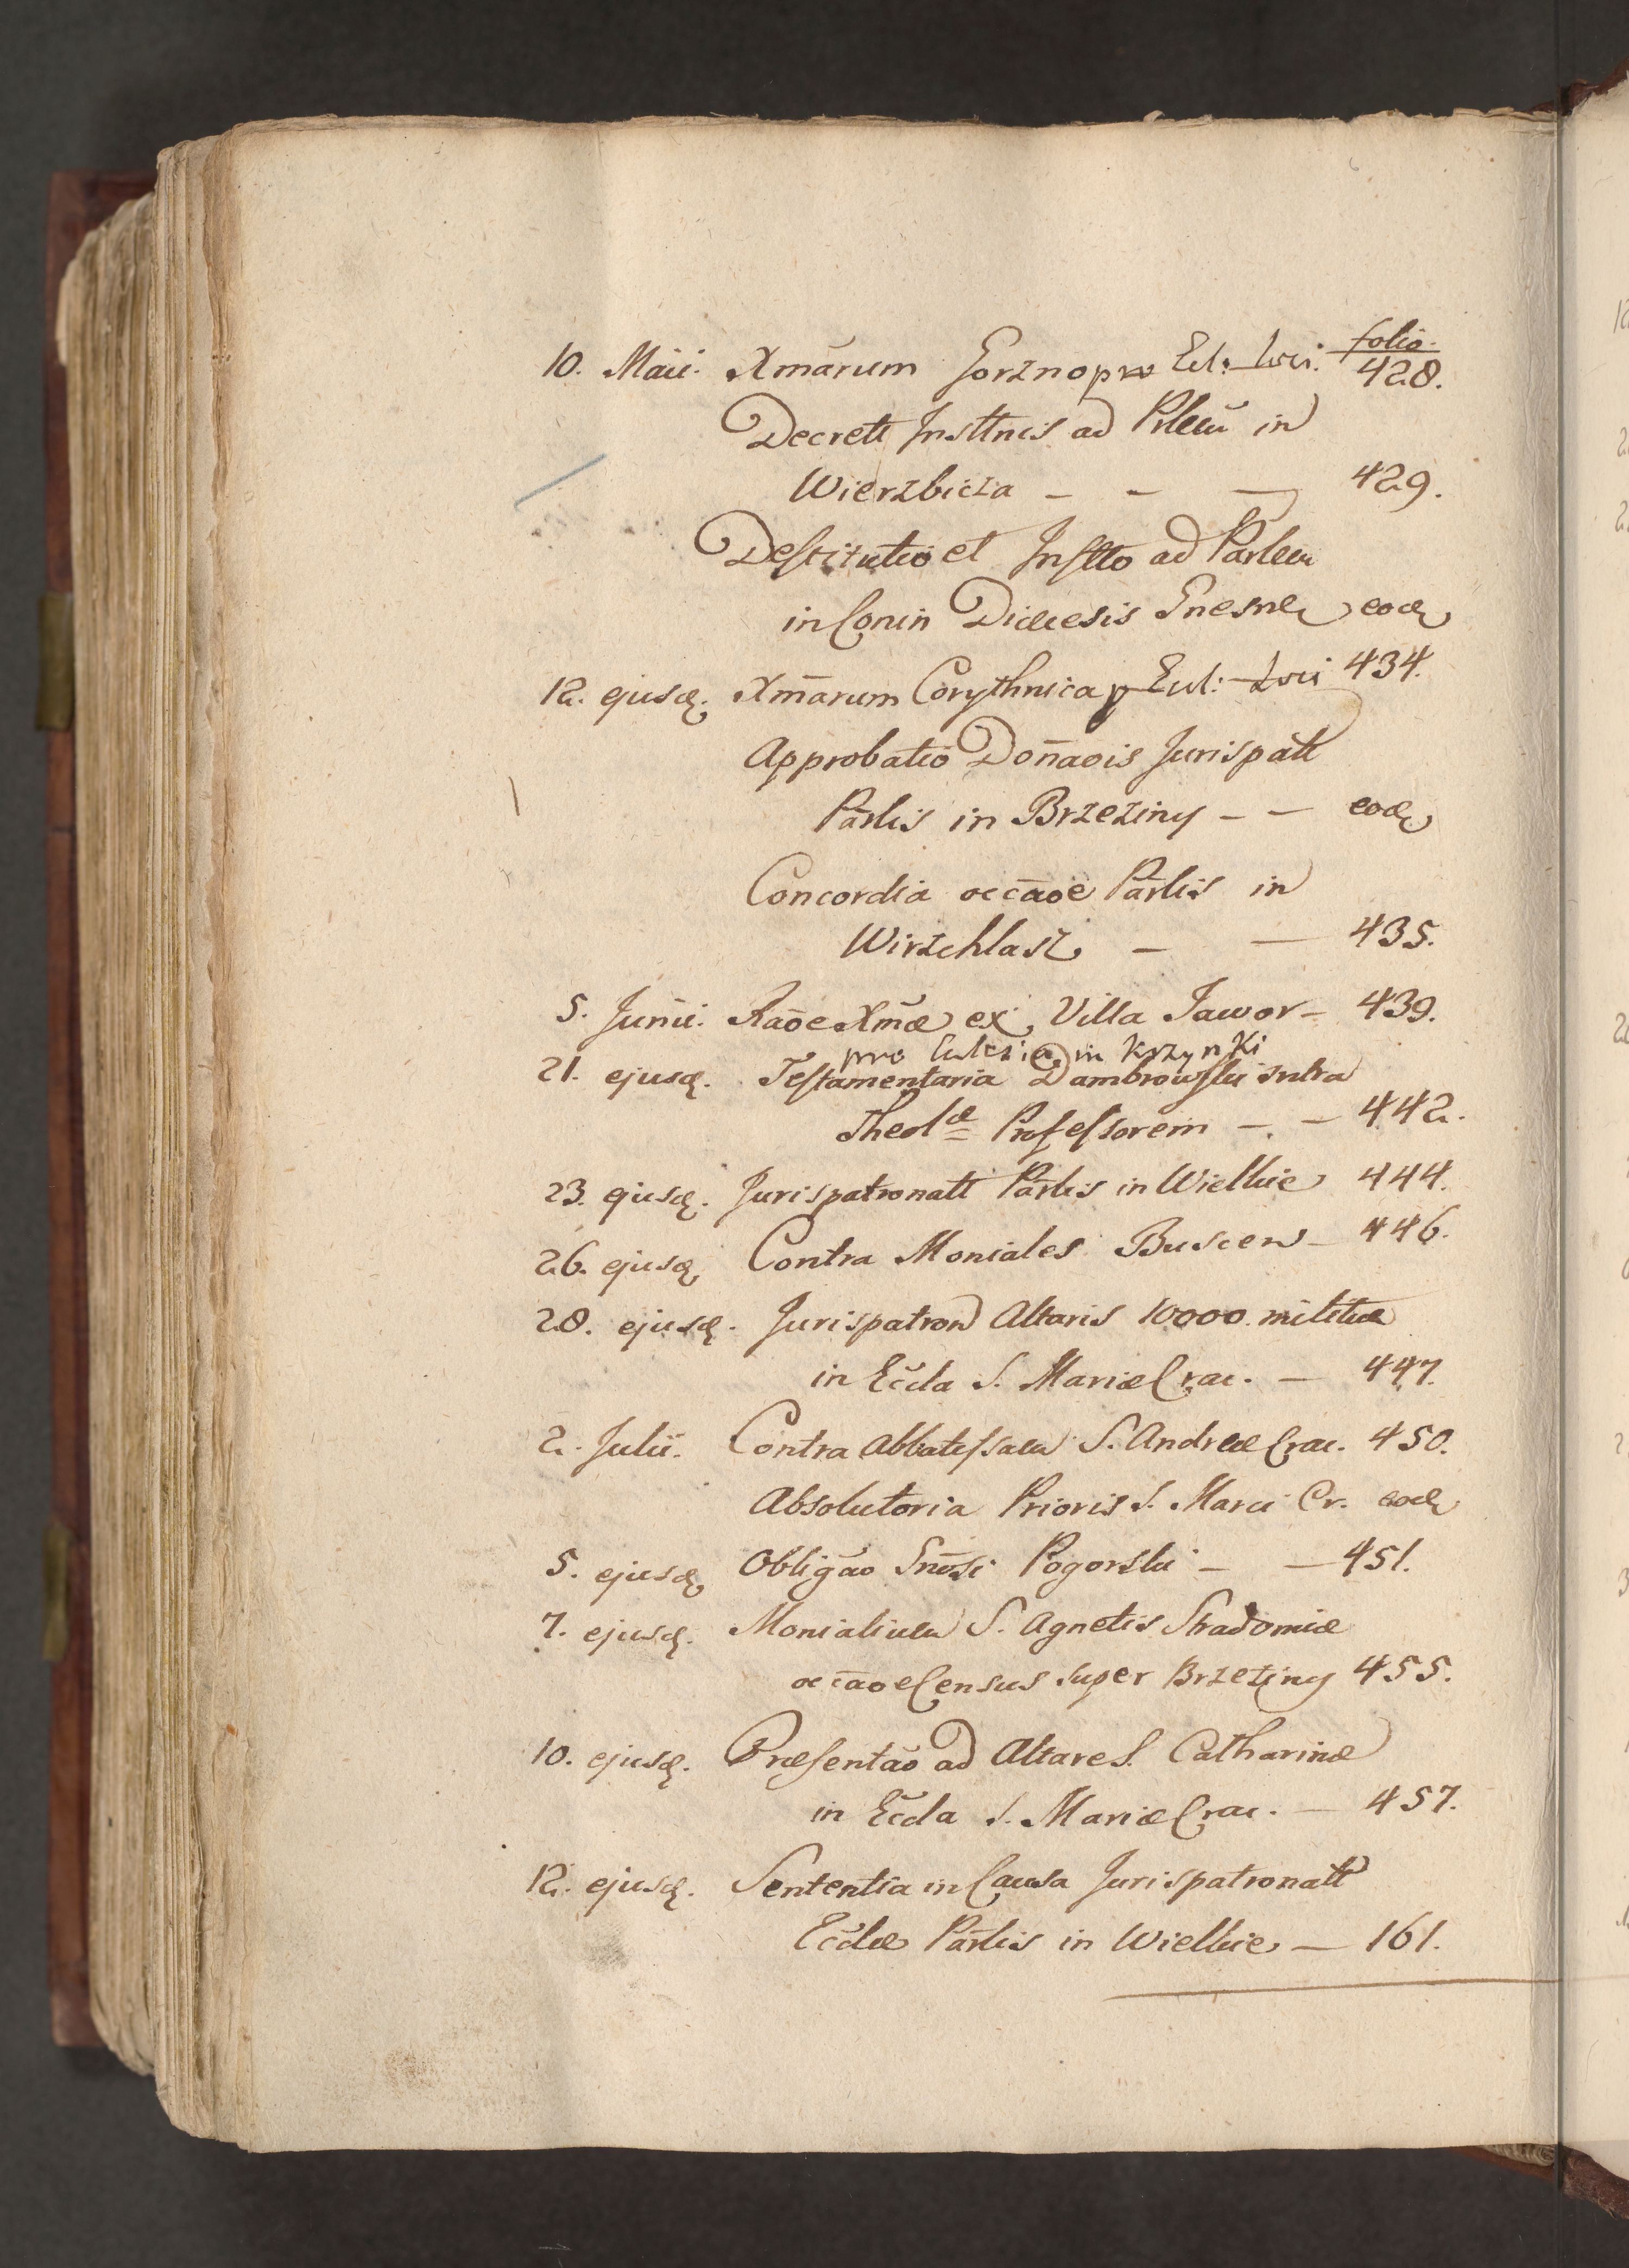 folio.
10. Maii. Xmārum Gorzno pro Ecl: Loci. 428.
Decreti Insttnis ad Plem̄ in
Wierzbicza - - - 429.
Destitutio et Instto ad Parlem
in Conin Diæcesis Gnesn̄ eodē
12. ejusdē. Xm̄arum Corythnica p Ecl: Loci 434.
Approbatio Don̄aōis Jurispatt
Pārlis in Brzeziny - - eodē
Concordia occāoē Pārlis in
Wirzchlasz - - 435.
5. Junii. Raōe Xmæ ex Villa Jawor - 439.
pro Eulesia in Krzynki
21. ejusdē. Testamentaria Dambrowski intra
Theolæ Professorem - - 442.
23. ejusdē. Jurispatronatt Pārlis in Wielkie 444.
26. ejusdē. Contra Moniales Buscen - 446.
28. ejusdē. Jurispatron Altaris 10000. militum
in Eccla S. Mariæ Crac. - 447.
2. Julii. Contra Abbatissam S. Andreæ Crac. 450.
Absolutoria Prioris S. Marci Cr. eodē
5. ejusdē Obligāo Gnōsi Pogorski - - 451.
7. ejusdē. Monialium S. Agnetis Stradomiæ
occāoe Census super Brzeziny 455.
10. ejusdē. Præsentāo ad Altare S. Catharinæ
in Eccla S. Mariæ Crac. - 457.
12. ejusdē. Sententia in Causa Jurispatronatt
Ecclæ Pārlis in Wielkie - 161.